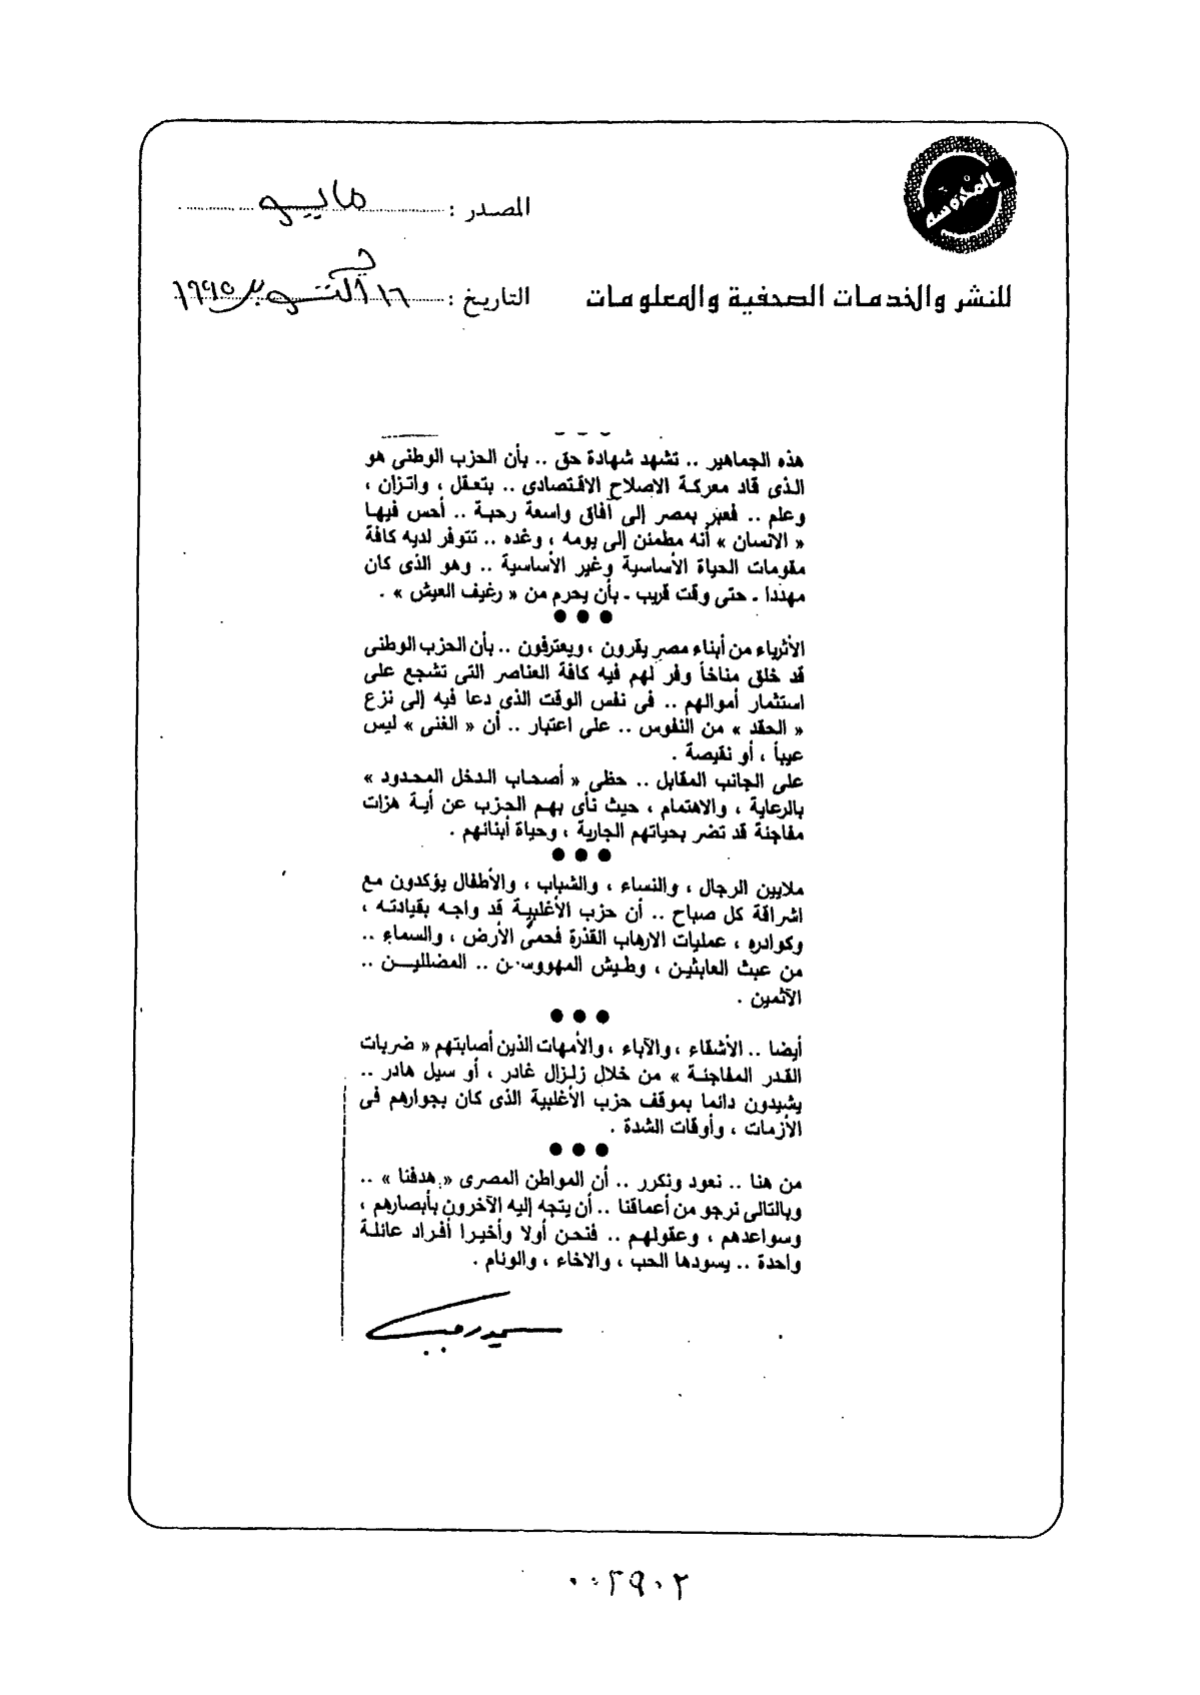 المحروسة
المصدر : مايو
للنشر والخدمات الصحفية والمعلومات
التاريخ : ١٦ أكتوبر ١٩٩٥
هذه الجماهير .. تشهد شهادة حق .. بأن الحزب الوطنى هو
الذى قاد معركة الاصلاح الاقتصادى .. بتعقل ، واتزان ،
وعلم .. فعبر بمصر إلى آفاق واسعة رحبة .. أحس فيها
« الانسان » أنه مطمئن إلى يومه ، وغده .. تتوفر لديه كافة
مقومات الحياة الأساسية وغير الأساسية .. وهو الذى كان
مهددا ـ حتى وقت قريب ـ بأن يحرم من « رغيف العيش » .
● ● ●
الأثرياء من أبناء مصر يقرون ، ويعترفون .. بأن الحزب الوطنى
قد خلق مناخاً وفر لهم فيه كافة العناصر التى تشجع على
استثمار أموالهم .. فى نفس الوقت الذى دعا فيه إلى نزع
« الحقد » من النفوس .. على اعتبار .. أن « الغنى » ليس
عيباً ، أو نقيصة .
على الجانب المقابل .. حظى « أصحاب الدخل المحدود »
بالرعاية ، والاهتمام ، حيث نأى بهم الحزب عن أية هزات
مفاجئة قد تضر بحياتهم الجارية ، وحياة أبنائهم .
● ● ●
ملايين الرجال ، والنساء ، والشباب ، والأطفال يؤكدون مع
اشراقة كل صباح .. أن حزب الأغلبية قد واجه بقيادته ،
وكوادره ، عمليات الارهاب القذرة فحمى الأرض ، والسماء ..
من عبث العابثين ، وطيش المهووسين .. المضلليـن ..
الآثمين .
● ● ●
أيضا .. الأشقاء ، والآباء ، والأمهات الذين أصابتهم « ضربات
القدر المفاجئة » من خلال زلزال غادر ، أو سيل هادر ..
يشيدون دائما بموقف حزب الأغلبية الذى كان بجوارهم فى
الأزمات ، وأوقات الشدة .
● ● ●
من هنا .. نعود ونكرر .. أن المواطن المصرى « هدفنا » ..
وبالتالى نرجو من أعماقنا .. أن يتجه إليه الآخرون بأبصارهم ،
وسواعدهم ، وعقولهم .. فنحن أولا وأخيرا أفراد عائلة
واحدة .. يسودها الحب ، والاخاء ، والوئام .
سمير رجب